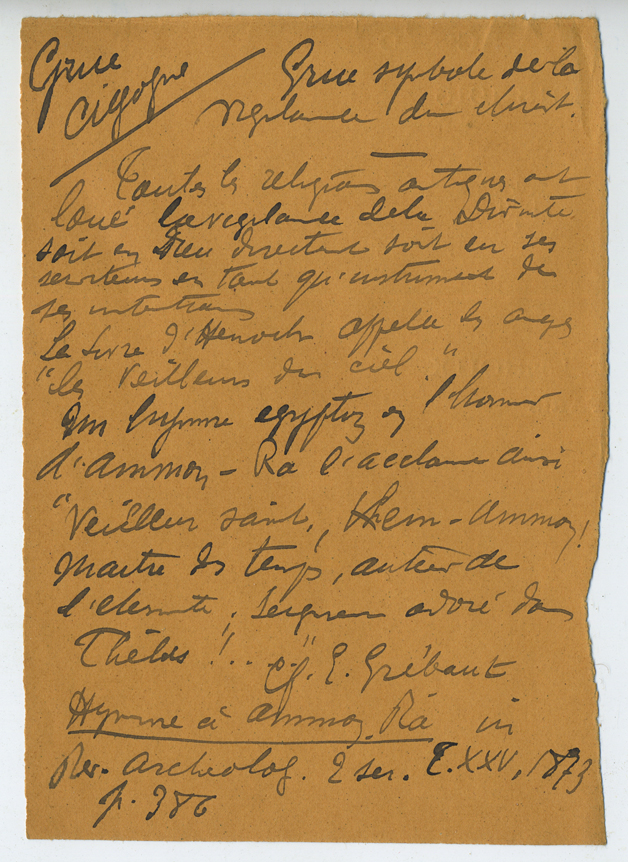 Grue
Cigogne
Grue symbole de la
vigilance du Christ.
Toutes les religions antiques ont
loué la vigilance de la Divinité
soit en Dieu directemt soit en ses
serviteurs en tant qu'instrument de
ses intentions
Le livre d'Henoch appelle les anges
"les Veilleurs du ciel"
Un hymne egyptien en l'honneur
d'Ammon-Ra l'acclame ainsi
"Veilleur saint, Khem-Ammon!
Maitre des temps, auteur de
l'eternité, seigneur adoré dans
Thèbes!..."
Cf. E. Grébaut
Hymne à Ammon-Ra in
Rev. Archeolog. 2 ser. T. XXV, 1873
p. 386